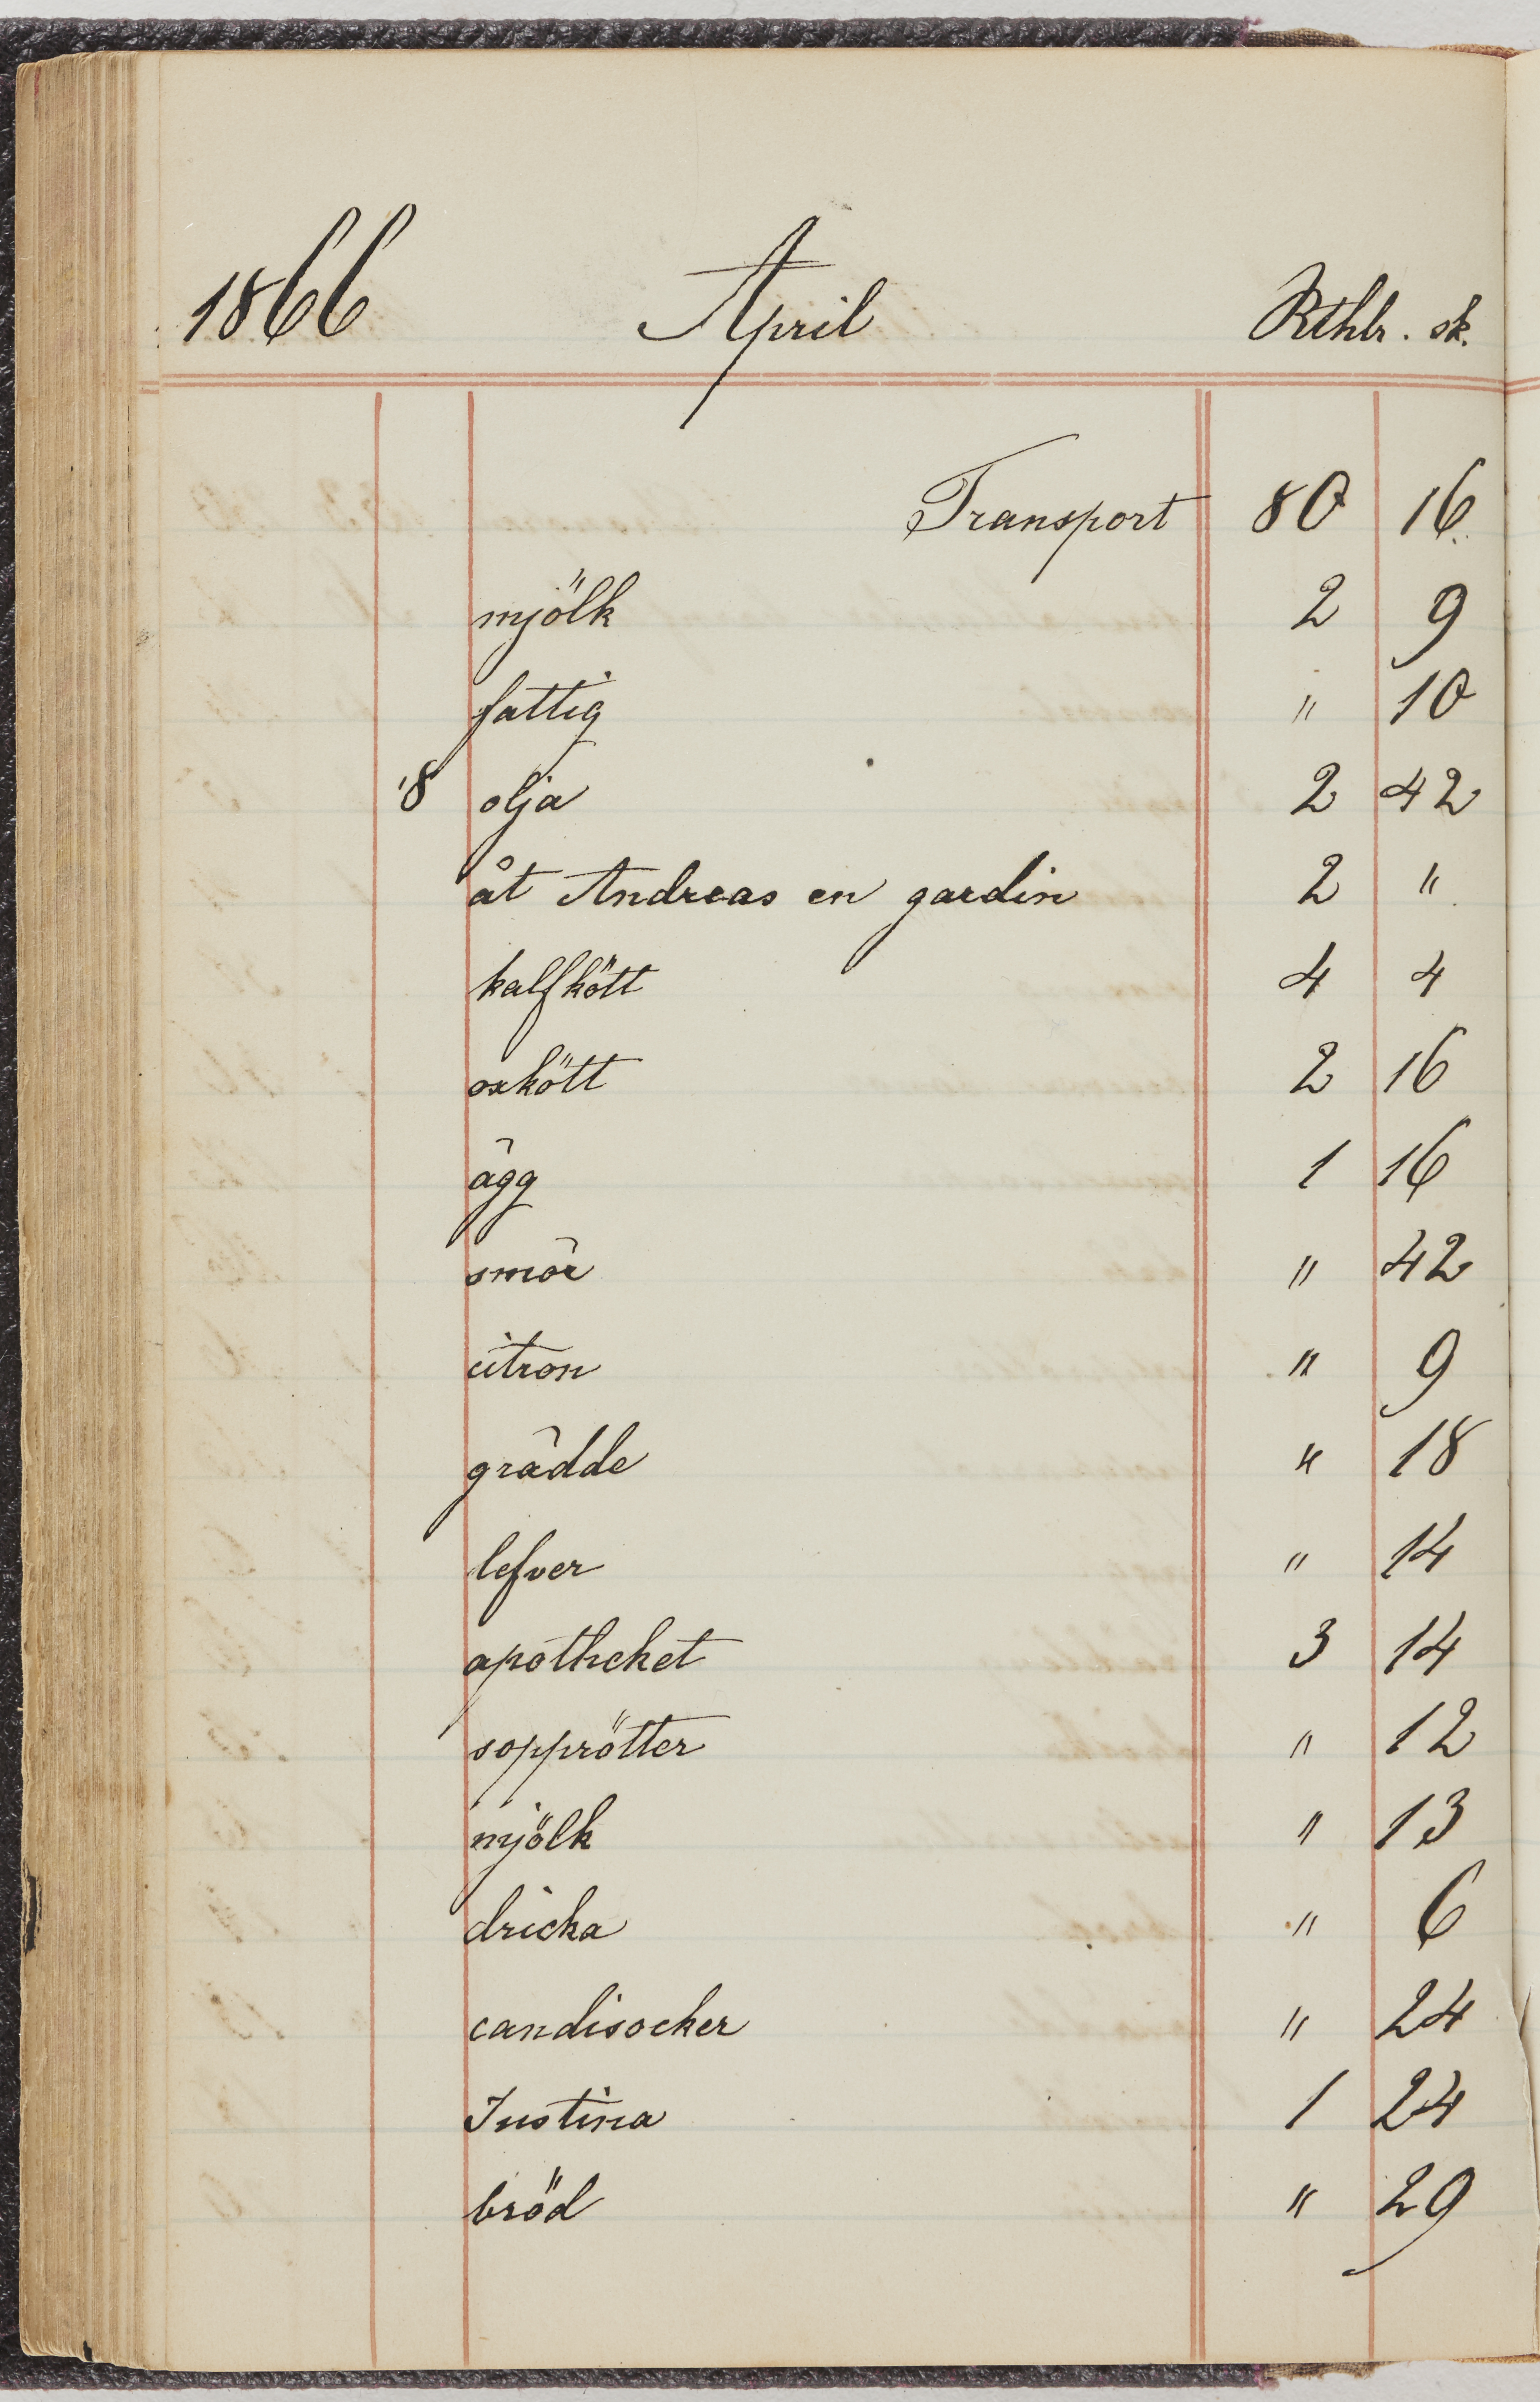 1866 April Rthlr. sk.
Transport 80 16
mjölk 2 9
fattig " 10
18 olja 2 42
åt Andreas en gardin 2 "
kalfkött 4 4
oxkött 2 16
ägg 1 16
smör " 42
citron " 9
grädde " 18
lefver " 14
apotheket 3 14
sopprötter " 12
mjölk " 13
dricka " 6
candisocker " 24
Justina 1 24
bröd " 29